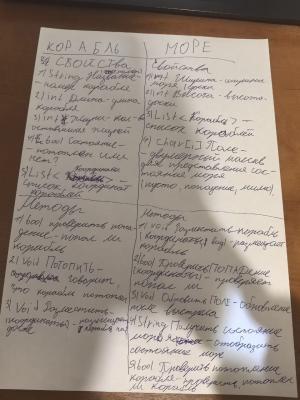 КОРАБЛЬ
СВОЙСТВА
1) String Название -
имя корабля
2) int Длина - длина
корабля
3) int Жизни - кол-во
оставшихся жизней
4) bool Состояние -
потоплен или
нет?
5) List <
список координат
кораблей
Методы
1) bool проверить попа-
дение - попал ли
корабль
2) void Потопить -
говорит,
что корабль потоплен
3) Void Разместить
МОРЕ
Свойства
1) int Ширина - ширина
моря (доски
2) int Высота - высота
доски
3) List <Корабль> -
список кораблей
4) char[,] Поле -
двумерный массив
для представления сос-
тояния моря
(пусто, попадание, мимо).
Методы
1) void Разместить корабль
(координаты, - размещает
корабль
2) bool Проверить ПОПАДАНИЕ
(координаты) - проверяет
попал ли
3) Void Обновить ПОЛЕ - обновление
после выстрела
4) String Получить состояние
моря - отобразить
состояние моря
5) bool Проверить потопление
корабля - проверить, потоплен
ли корабль